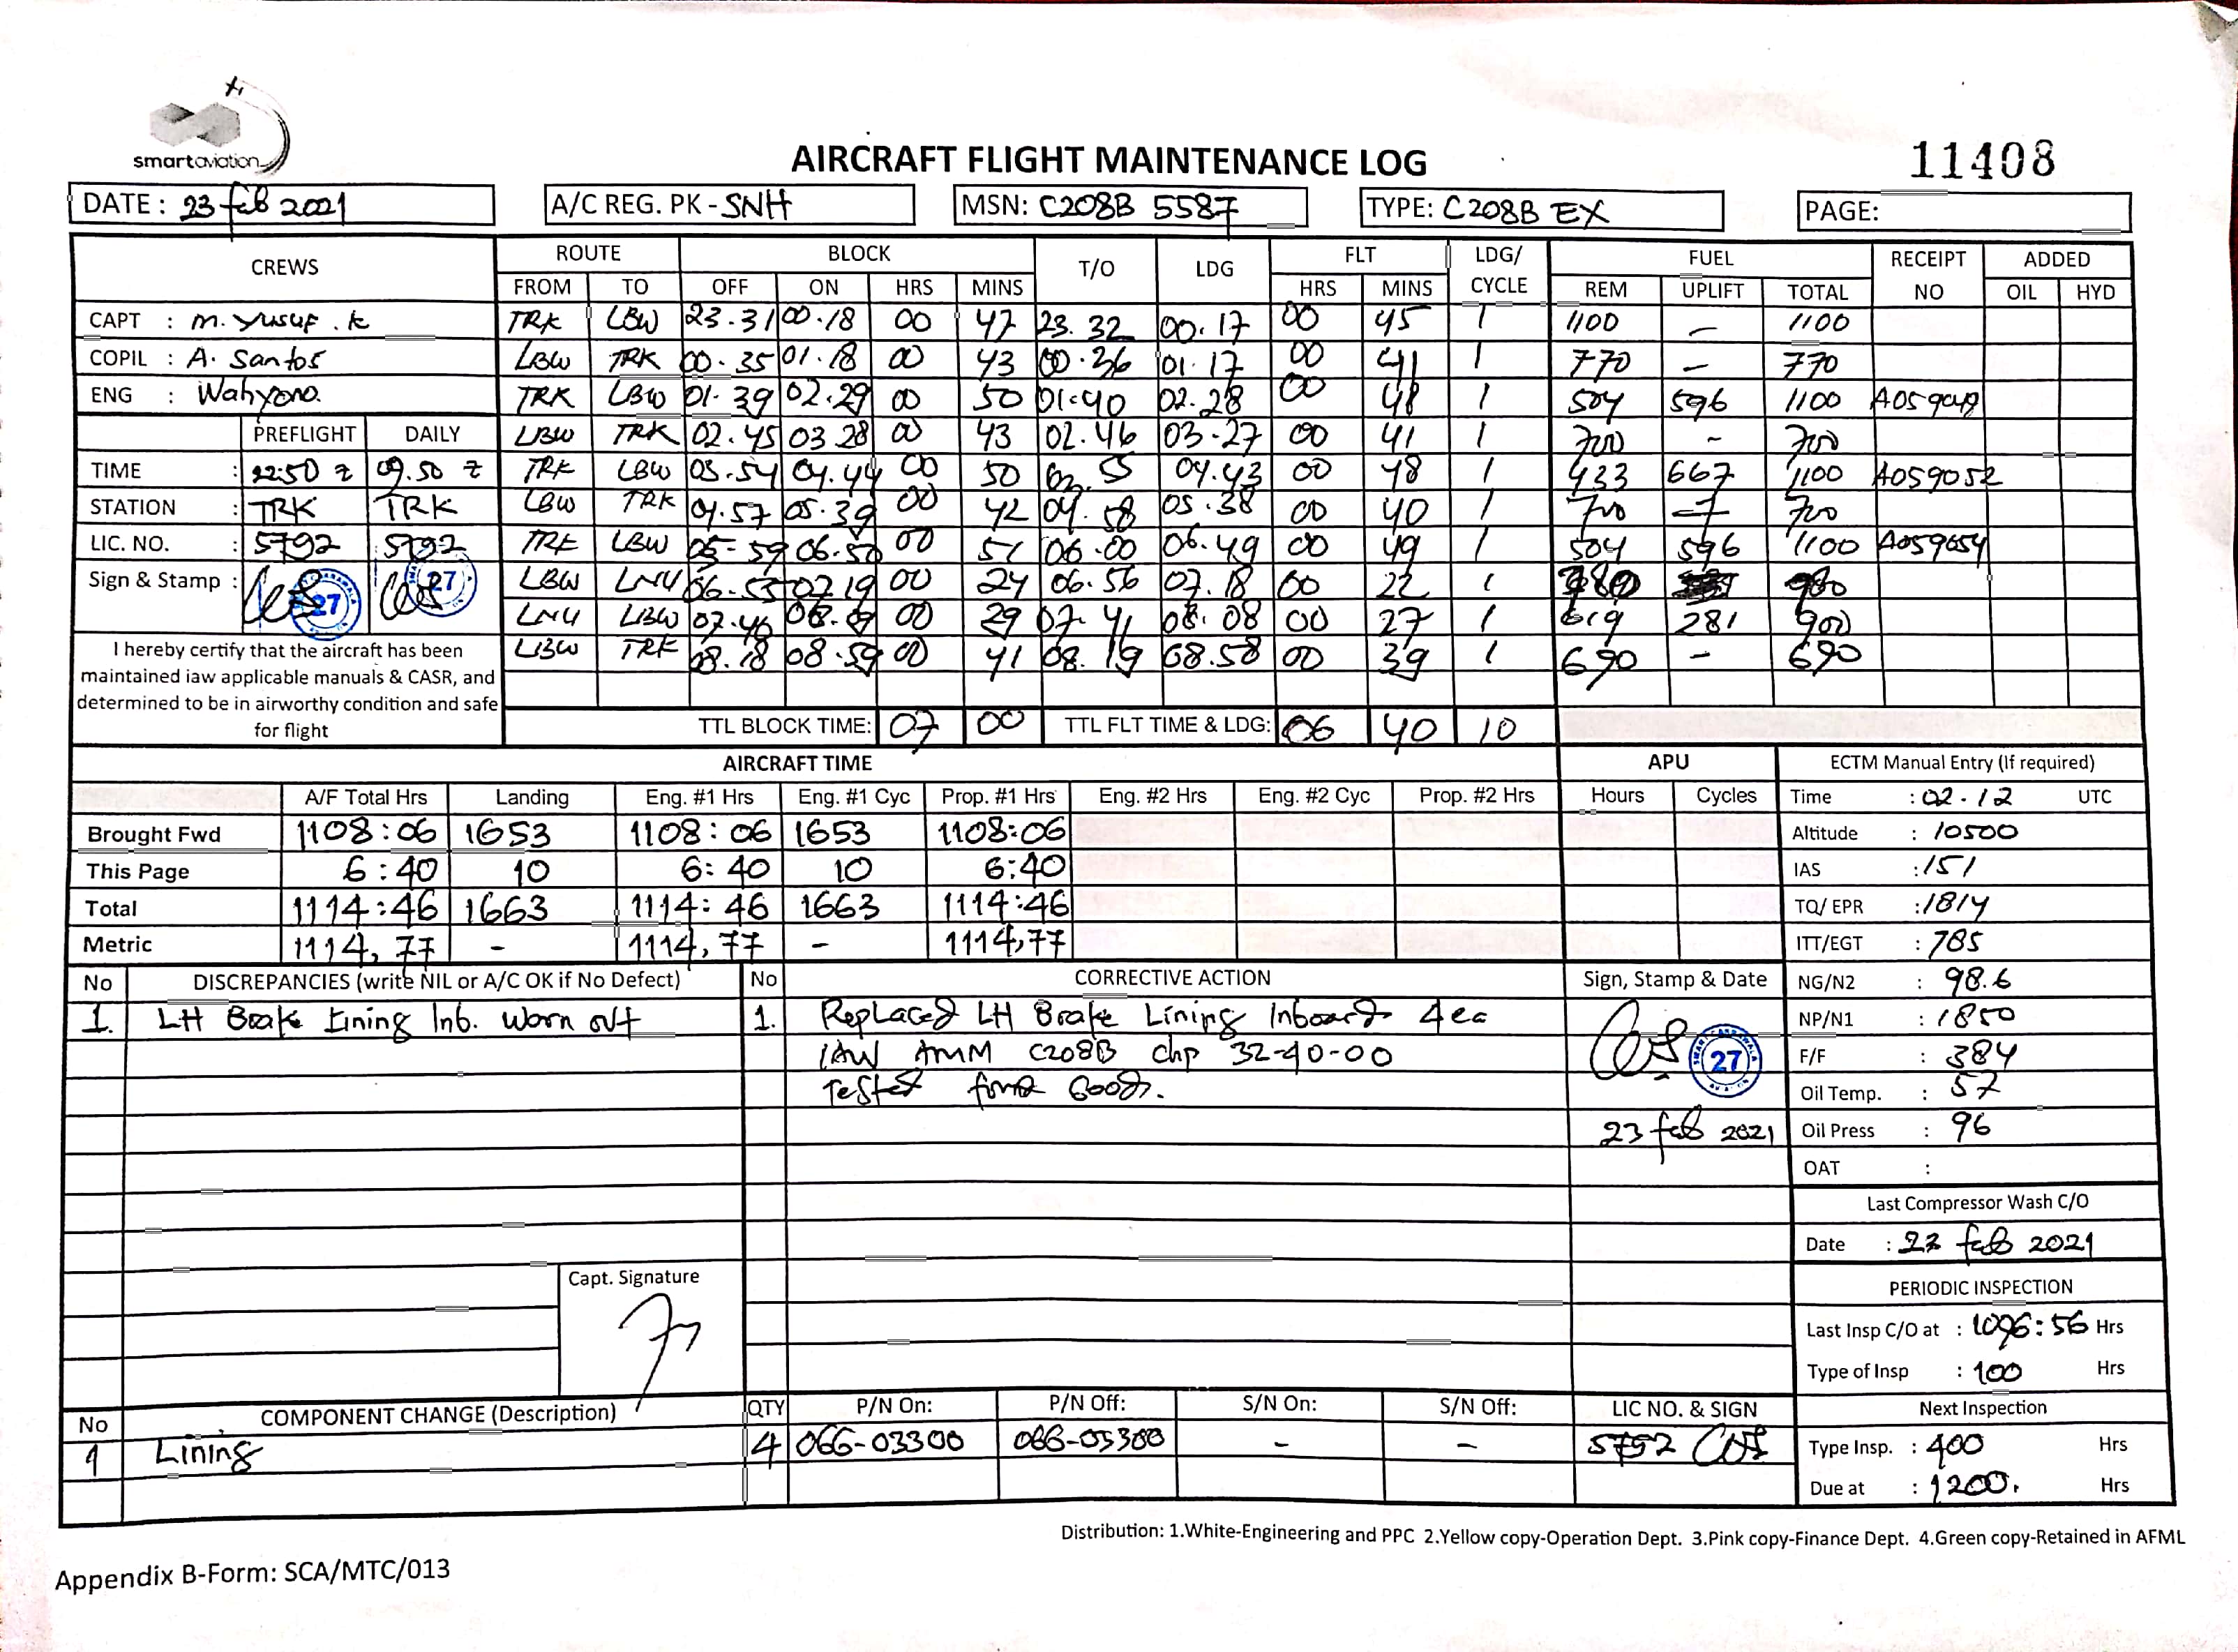 smartaviation
AIRCRAFT FLIGHT MAINTENANCE LOG
11408
DATE : 23 feb 2021 A/C REG. PK - SNH MSN: C208B 5587 TYPE: C208B EX PAGE:
CREWS ROUTE BLOCK T/O LDG FLT LDG/ CYCLE FUEL RECEIPT NO ADDED
FROM TO OFF ON HRS MINS HRS MINS REM UPLIFT TOTAL OIL HYD
CAPT : M. Yusuf . K TRK LBW 23.31 00.18 00 47 23.32 00.17 00 45 1 1100 - 1100
COPIL : A. Santos LBW TRK 00.35 01.18 00 43 00.36 01.17 00 41 1 770 - 770
ENG : Wahyono. TRK LBW 01.39 02.29 00 50 01.40 02.28 00 48 1 504 596 1100
PREFLIGHT DAILY LBW TRK 02.45 03 28 00 43 02.46 03.27 00 41 1 700 - 700
TIME : 22:50 z 09.50 z TRK LBW 03.54 04.44 00 50 55 04.43 00 48 1 433 667 1100 A059052
STATION : TRK TRK LBW TRK 04.57 05.39 00 42 04.58 05.38 00 40 1 700 - 700
LIC. NO. : 5792 5792 TRK LBW 05-59 06.50 00 51 06.00 06.49 00 49 1 504 596 1100
Sign & Stamp : 27 27 LBW LNU 06.55 07.19 00 24 06.56 07.18 00 22 1
LNU LBW 07.40 08.09 00 29 07.41 08.08 00 27 1 619 281 900
LBW TRK 08.18 08.59 00 41 08.19 08.58 00 39 1 690 - 690
I hereby certify that the aircraft has been
maintained iaw applicable manuals & CASR, and
determined to be in airworthy condition and safe
for flight
TTL BLOCK TIME: 07 00 TTL FLT TIME & LDG: 06 40 10
AIRCRAFT TIME APU ECTM Manual Entry (If required)
A/F Total Hrs Landing Eng. #1 Hrs Eng. #1 Cyc Prop. #1 Hrs Eng. #2 Hrs Eng. #2 Cyc Prop. #2 Hrs Hours Cycles Time : 02.12 UTC
Brought Fwd 1108:06 1653 1108:06 1653 1108:06 Altitude : 10500
This Page 6:40 10 6:40 10 6:40 IAS : 151
Total 1114:46 1663 1114:46 1663 1114:46 TQ/ EPR : 1814
Metric 1114,77 - 1114,77 - 1114,77 ITT/EGT : 785
No DISCREPANCIES (write NIL or A/C OK if No Defect) No CORRECTIVE ACTION Sign, Stamp & Date NG/N2 : 98.6
1. LH Brake Lining Inb. Worn out 1. Replaced LH Brake Lining Inboard 4 ea NP/N1 : 1850
IAW AMM C208B chp 32-40-00 27 F/F : 384
Tested found Good. Oil Temp. : 57
23 feb 2021 Oil Press : 96
OAT :
Last Compressor Wash C/O
Date : feb 2021
Capt. Signature
PERIODIC INSPECTION
Last Insp C/O at : 1096:56 Hrs
Type of Insp : 100 Hrs
No COMPONENT CHANGE (Description) QTY P/N On: P/N Off: S/N On: S/N Off: LIC NO. & SIGN Next Inspection
1 Lining 4 066-03300 - - 5792 Type Insp. : 400 Hrs
Due at : 1200. Hrs
Distribution: 1.White-Engineering and PPC 2.Yellow copy-Operation Dept. 3.Pink copy-Finance Dept. 4.Green copy-Retained in AFML
Appendix B-Form: SCA/MTC/013